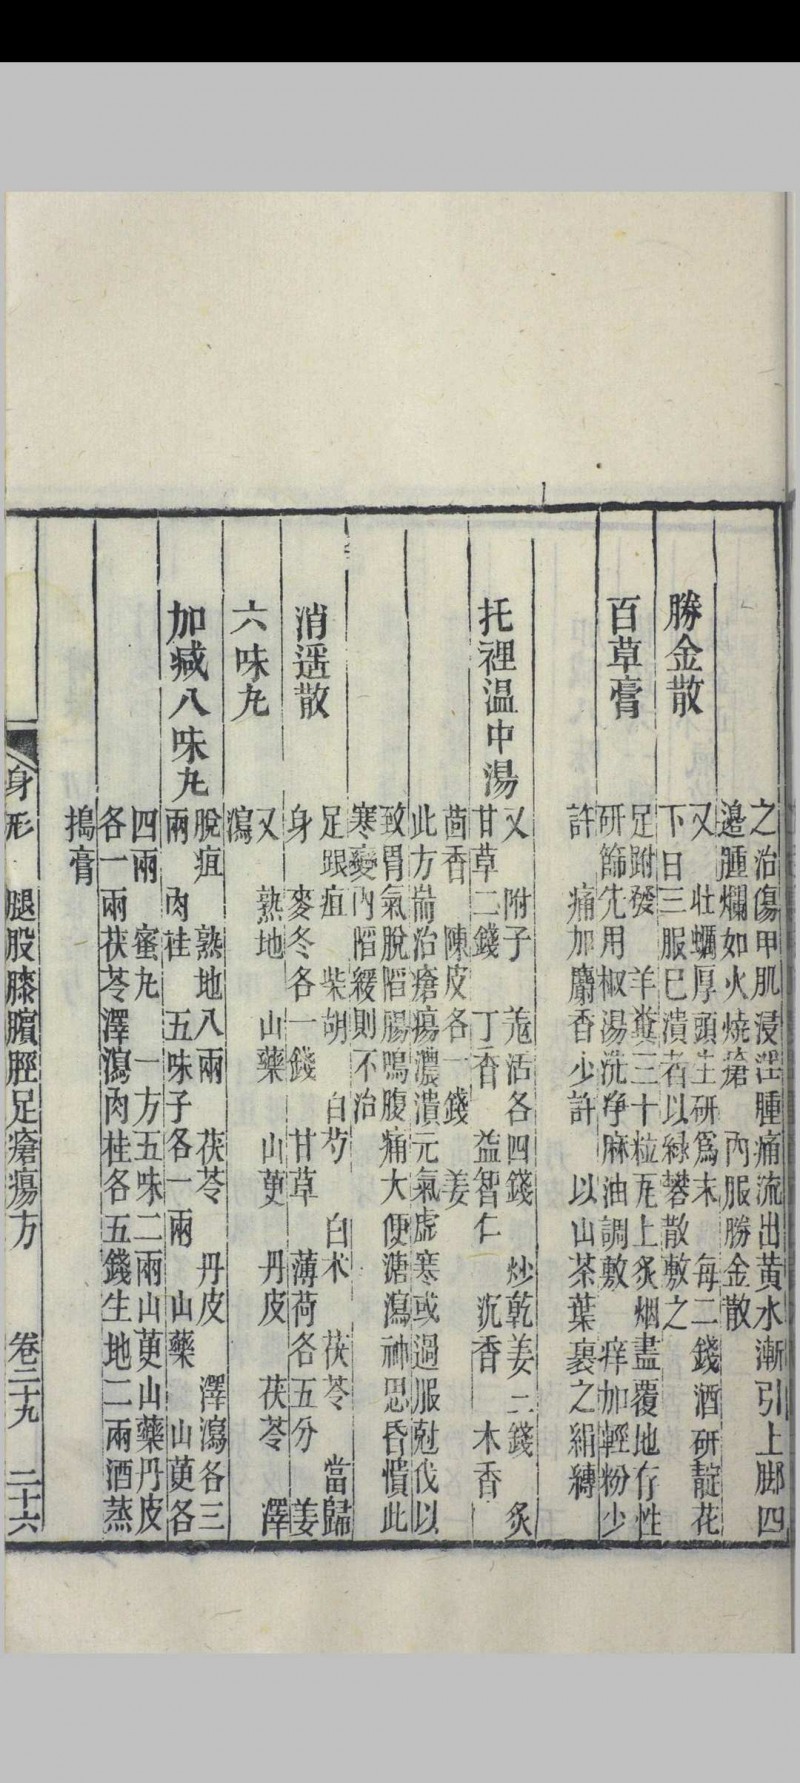 之治傷甲肌浸淫腫痛流出黃水漸引上脚四
邉腫爛如火燒瘡　內服勝金散
勝金散
又　牡蠣厚頭生研爲末　每二錢酒研靛花
下日三服已潰者以綠礬散敷之
百草膏
足跗發　羊糞三十粒瓦上炙烟盡覆地存性
研篩先用椒湯洗淨麻油調敷　痒加輕粉少
許　痛加麝香少許　以山茶葉裹之絹縛
托裡溫中湯
又　附子　羗活各四錢　炒乾姜二錢　炙
甘草二錢　丁香　益智仁　沉香　木香
茴香　陳皮各一錢　姜
此方耑治瘡瘍濃潰元氣虛寒或過服尅伐以
致胃氣脫陷腸鳴腹痛大便溏瀉神思昏憒此
寒變內陷緩則不治
消遥散
足跟疽　柴胡　白芍　白术　茯苓　當歸
身　麥冬各一錢　甘草　薄荷各五分　姜
六味丸
又　熟地　山藥　山萸　丹皮　茯苓　澤
瀉
加減八味丸
脫疽　熟地八兩　茯苓　丹皮　澤瀉各三
兩　肉桂　五味子各一兩　山藥　山萸各
四兩　蜜丸　一方五味二兩山萸山藥丹皮
各一兩茯苓澤瀉肉桂各五錢生地二兩酒蒸
搗膏
身形　腿股膝臏脛足瘡瘍方　卷三十九　二十六